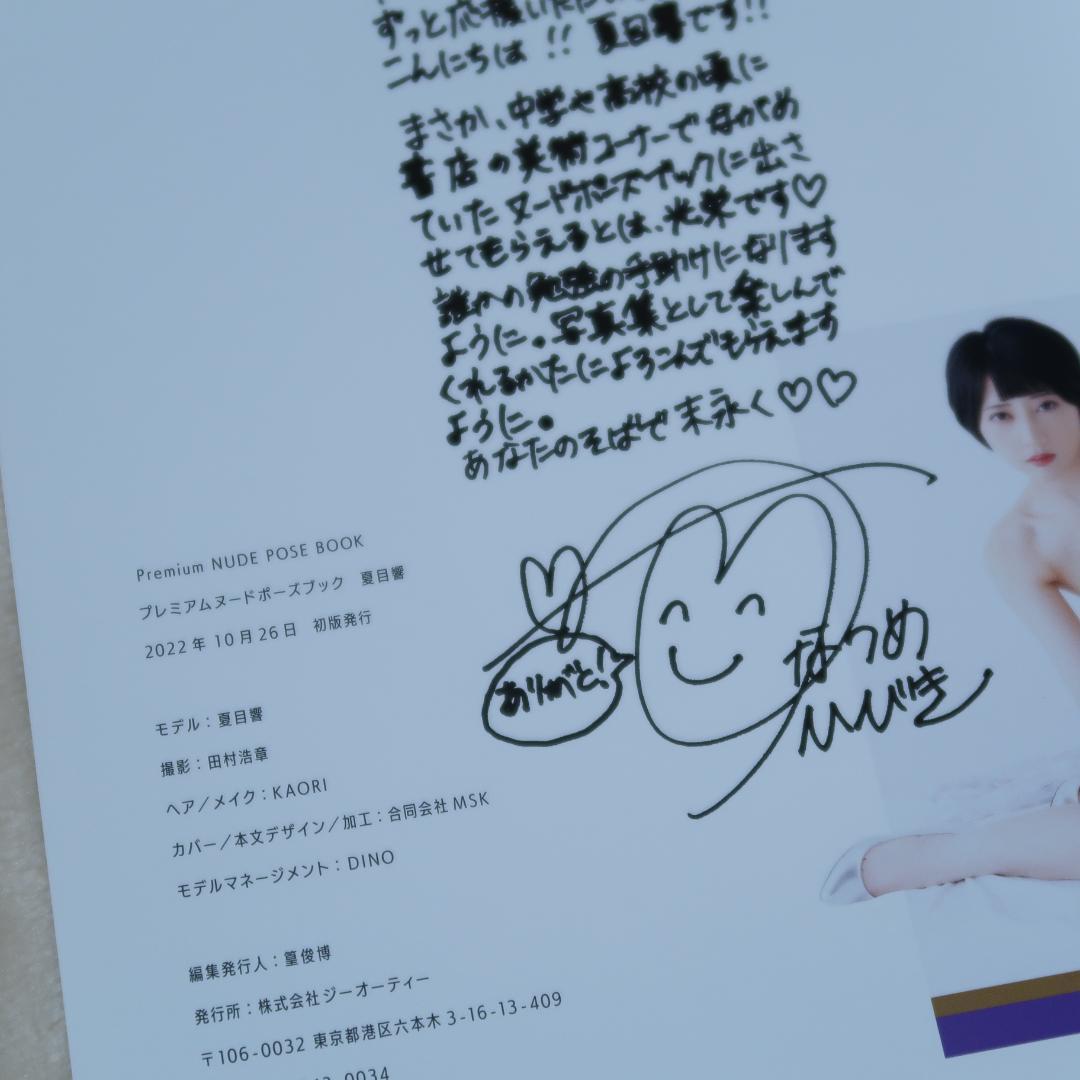 ずっと応援いただい
こんにちは!! 夏目響です!!
まさか、中学や高校の頃に
書店の美術コーナーでながめ
ていたヌードポーズブックに出さ
せてもらえるとは、光栄です♡
誰かの勉強の手助けになります
ように。写真集として楽しんで
くれるかたによろこんでもらえます
ように。
あなたのそばで 末永く♡♡
ありがと!
なつめ
ひびき
Premium NUDE POSE BOOK
プレミアムヌードポーズブック 夏目響
2022年 10月26日 初版発行
モデル:夏目響
撮影:田村浩章
ヘア/メイク:KAORI
カバー/本文デザイン/加工:合同会社MSK
モデルマネージメント:DINO
編集発行人:篁俊博
発行所:株式会社ジーオーティー
〒106-0032 東京都港区六本木 3-16-13-409
0034